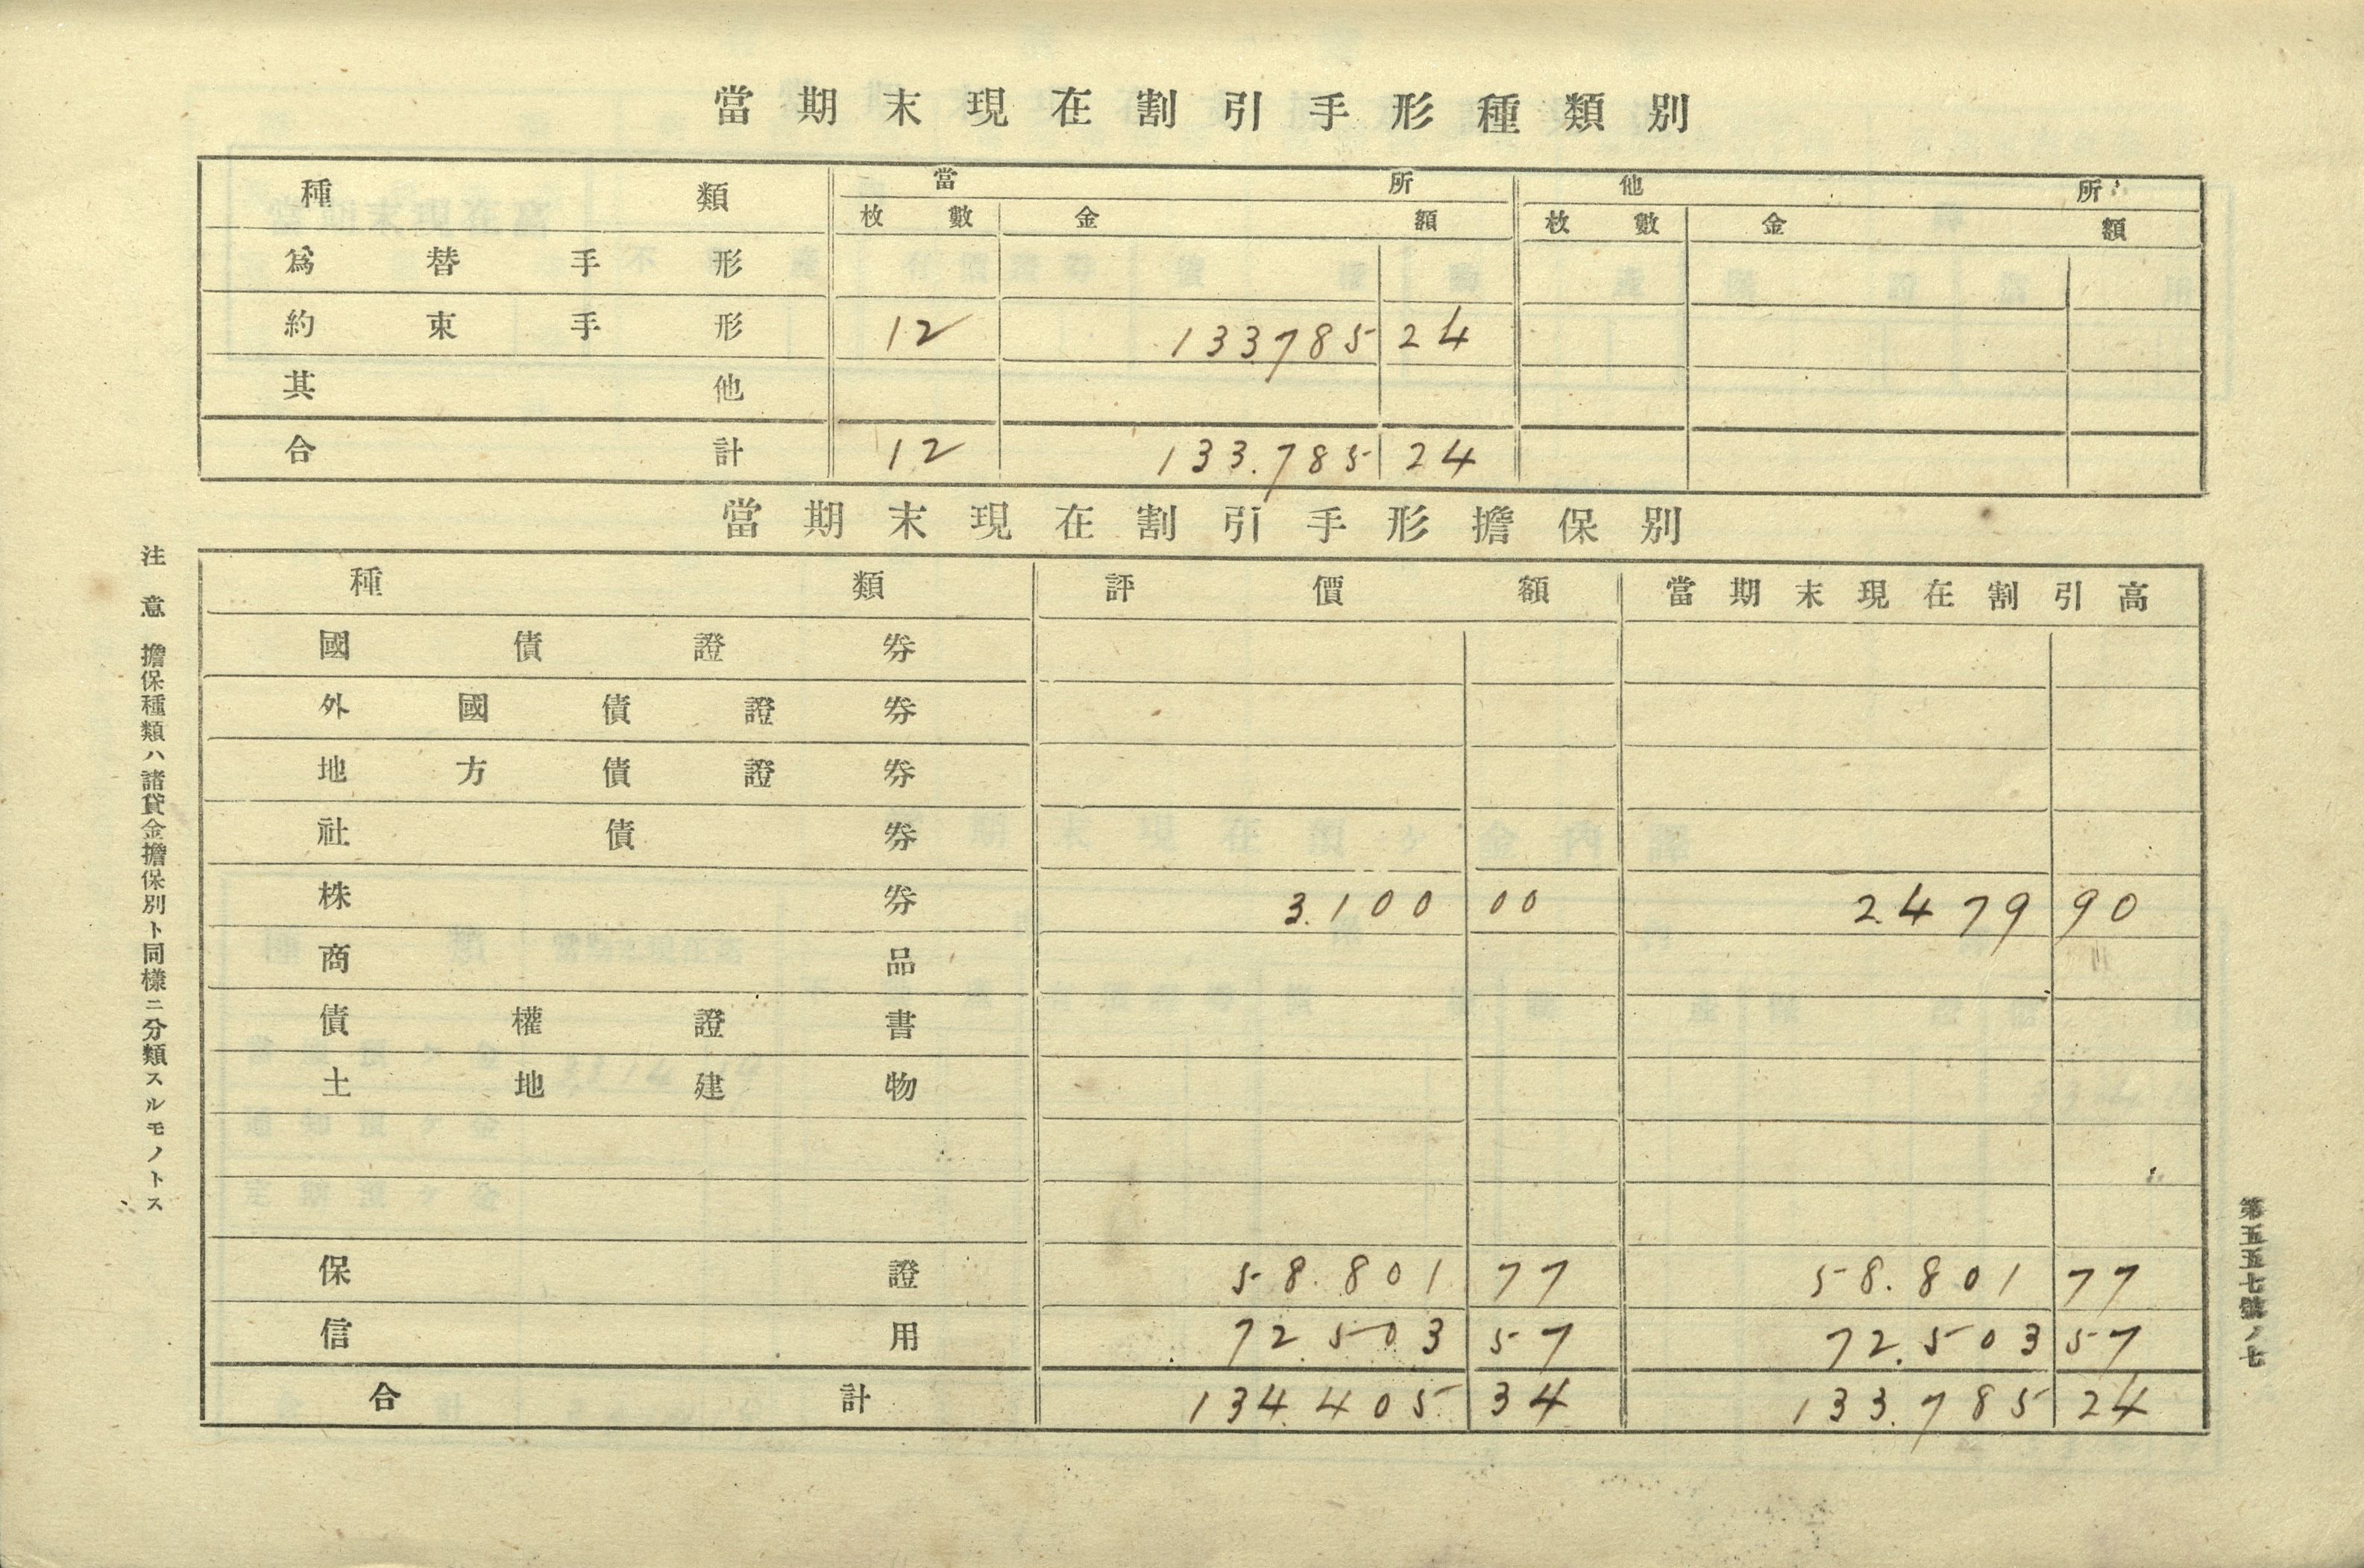 當期末現在割引手形種類別
種類 當所 他所
枚數 金額 枚數 金額
爲替手形
約束手形 12 133.785 24
其他
合計 12 133.785 24
當期末現在割引手形擔保別
種類 評價額 當期末現在割引高
國債證券
外國債證券
地方債證券
社債券
株券 3.100 00 2.479 90
商品
債權證書
土地建物
保證 58.801 77 58.801 77
信用 72.503 57 72.503 57
合計 134.405 34 133.785 24
注意 擔保種類ハ諸貸金擔保別ト同樣ニ分類スルモノトス
第五五七號ノ七